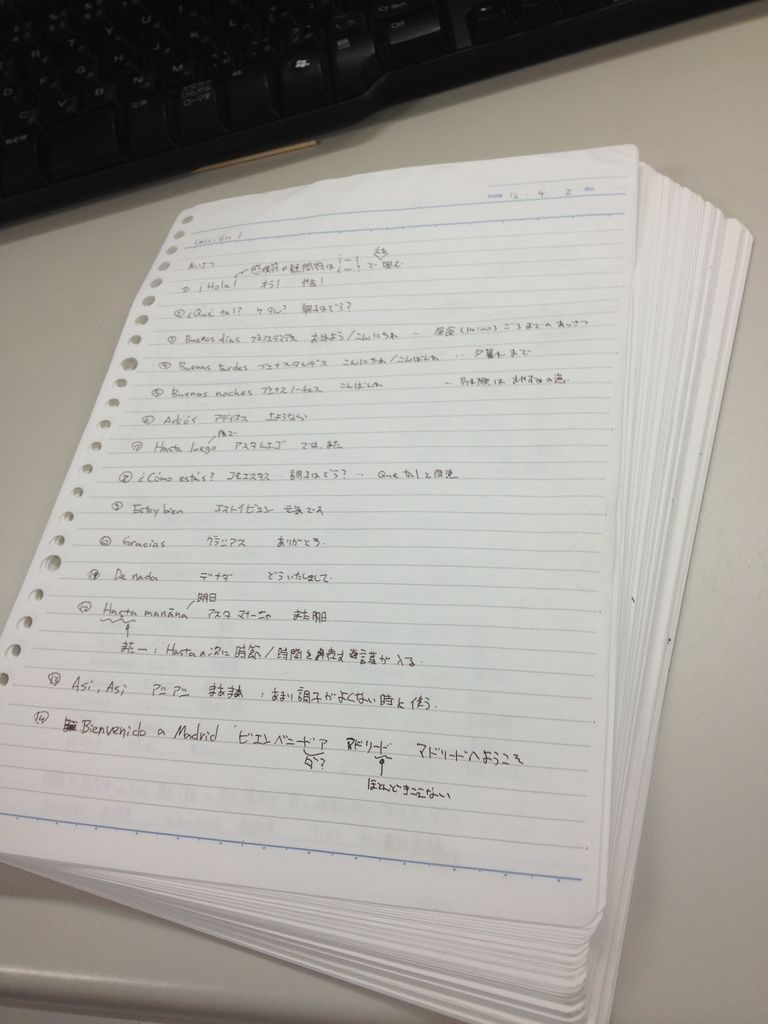 Date 12・4・2 No.
Lección 1
あいさつ 感嘆符や疑問符は ¡~! ¿~? で囲む
① ¡Hola! オラ! やあ!
② ¿Qué tal? ケタル? 調子はどう?
③ Buenos dias ブエノスディアス おはよう/こんにちわ ‥ 昼食(14:00)ごろまでのあいさつ
④ Buenas tardes ブエナスタルデス こんにちわ/こんばんわ ‥ 夕暮れまで
⑤ Buenas noches ブエナスノーチェス こんばんわ ‥ 別れ際はおやすみの意
⑥ Adiós アディオス さようなら
⑦ Hasta luego アスタルエゴ では、また
後で
⑧ ¿Cómo estás? コモエスタス 調子はどう? ‥ Que talと同意
⑨ Estoy bien エストイビエン 元気です
⑩ Gracias グラシアス ありがとう
⑪ De nada デナダ どういたしまして
明日
⑫ Hasta manãna アスタ マニャーナ また明日
また~:Hastaの次に時節/時間を表す言葉が入る.
⑬ Asi, Asi アシアシ まあまあ :あまり調子がよくない時に使う.
⑭ Bienvenido a Madrid ビエンベニードア マドリード マドリードへようこそ
ダ?
ほとんどきこえない